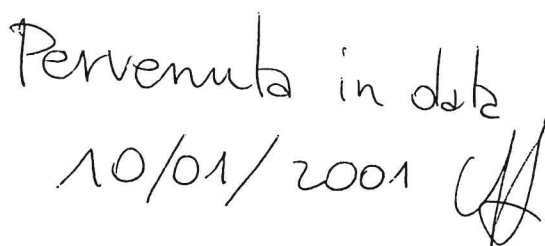 Pervenuta in data
10/01/2001